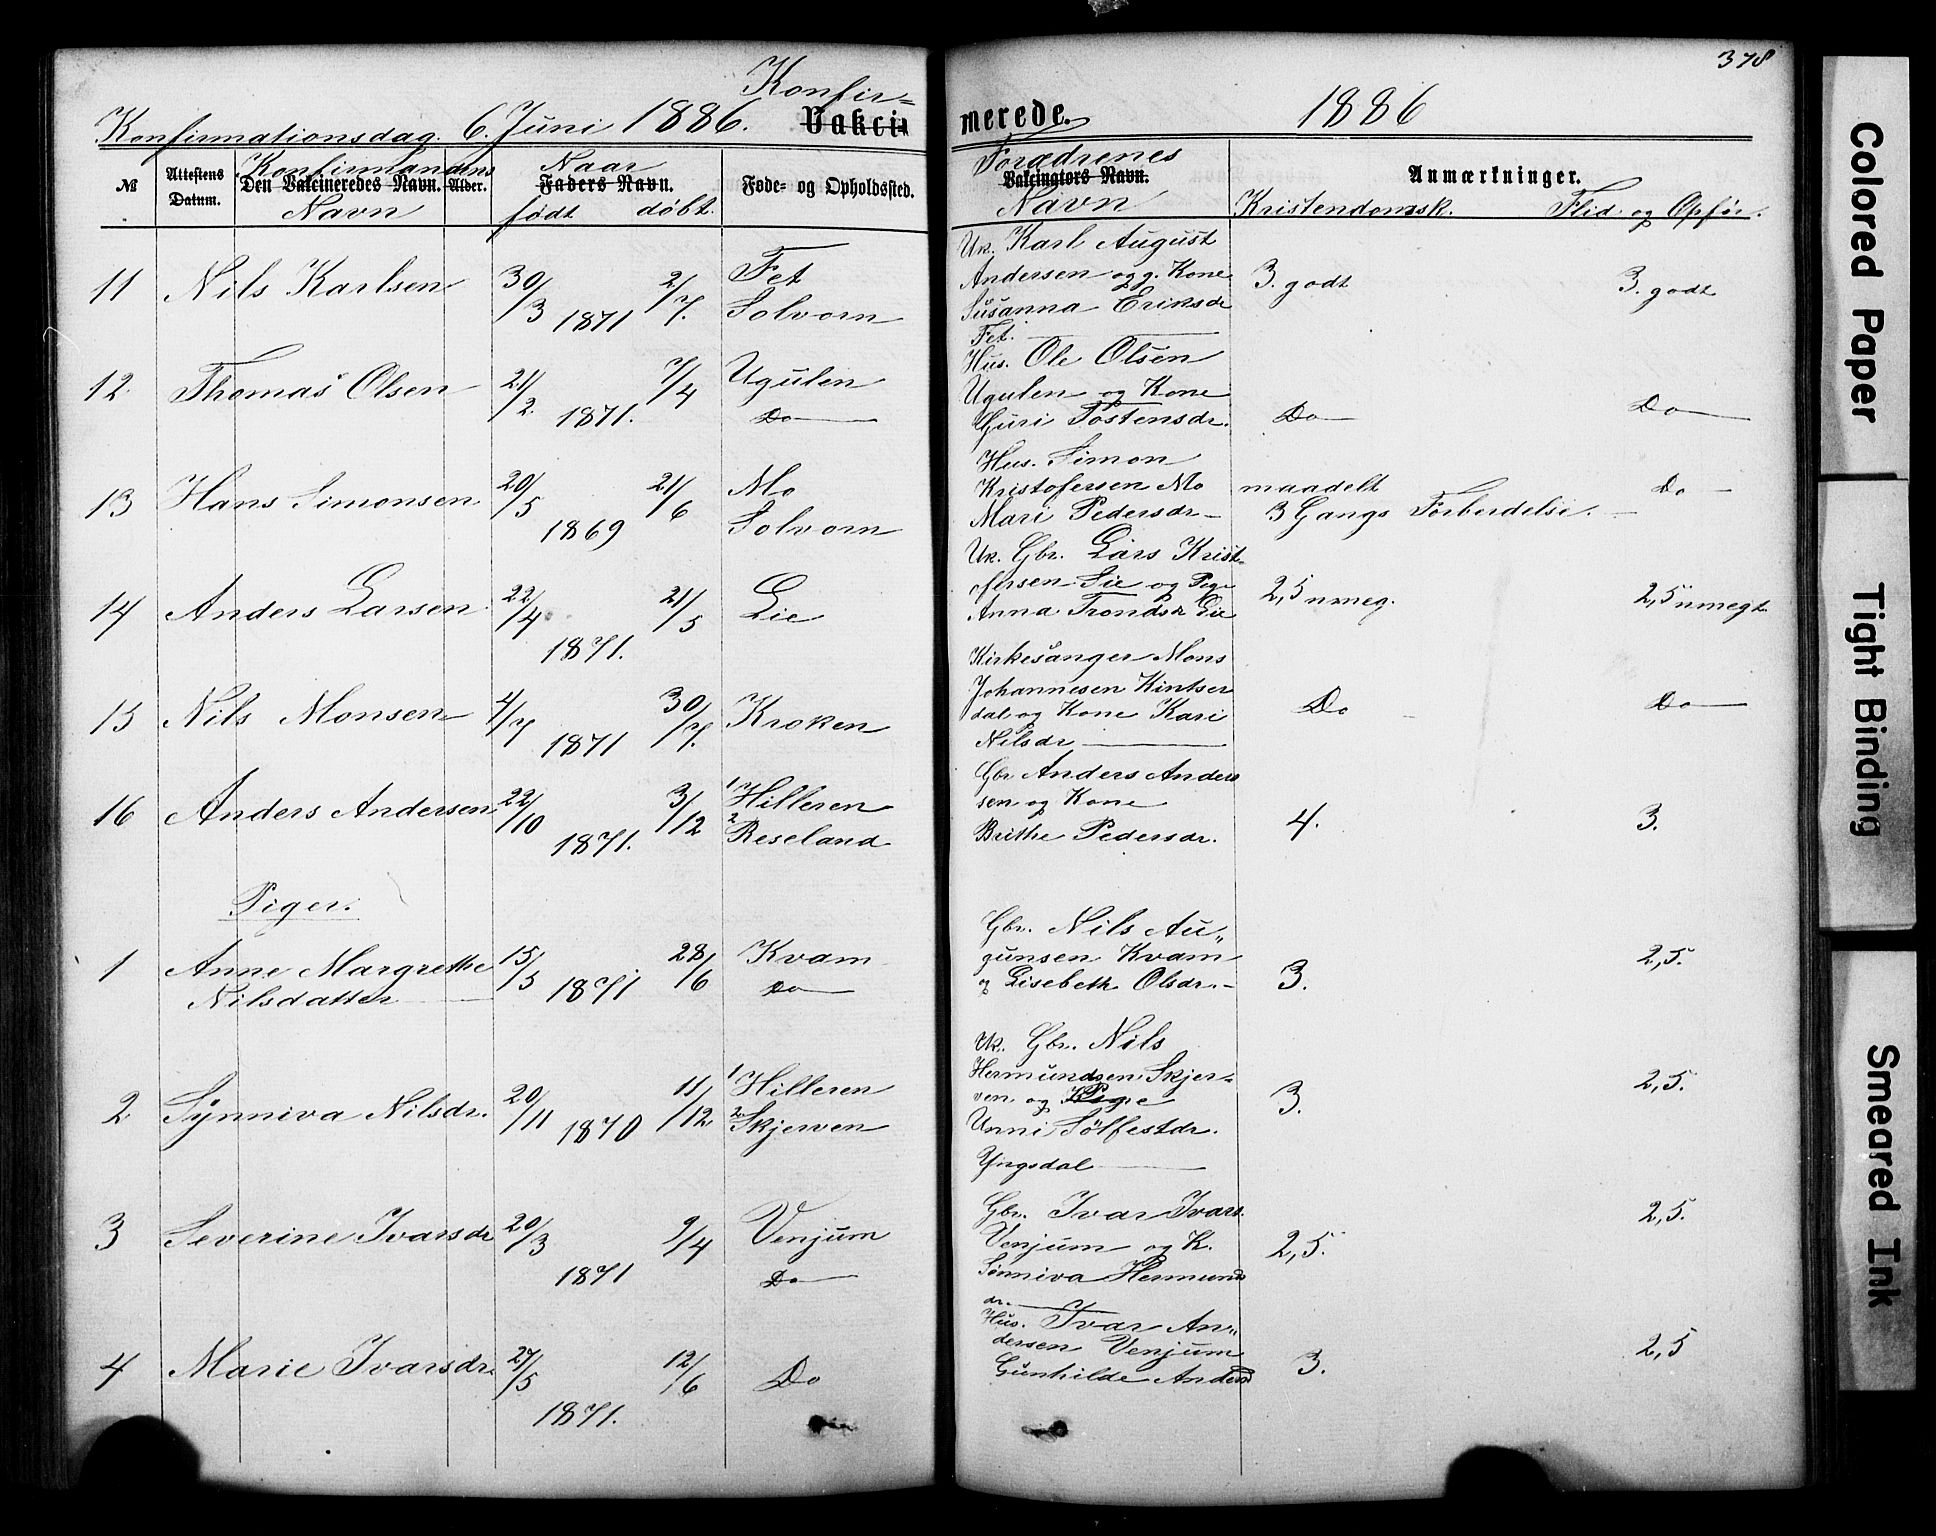 378
Konfir=
Konfirmationsdag. 6. Juni 1886. Vakci merede. 1886
№ Attestens Datum. Den Vakcineredes Navn. Alder. Faders Navn. Føde- og Opholdssted. Vakcinators Navn. Anmærkninger.
Konfirmandens Navn Naar født døbt. Forædrenes Navn Kristendomsk. Flid og Opfør.
11 Nils Karlsen 30/3 1871 2/7. Fet Solvorn
Uk. Karl August
Andersen og g. Kone
Susanna Eriksdr
Fet.
3. godt 3. godt
12. Thomas Olsen 21/2. 1871. 7/4 Ugulen Do
Hus. Ole Olsen
Ugulen og Kone
Guri Tostensdr.
Do Do
13 Hans Simonsen 20/5 1869 21/6 Mo Solvorn
Hus. Simon
Kristofersen Mo
Mari Pedersdr
maadelt
3 Gangs Forberdelse. Do
14 Anders Larsen 22/4 1871. 21/5 Lie
Uk. Gbr. Lars Krist=
ofersen Lie og Pige
Anna Trondsdr Lie
2,5 nmeg. 2,5 nmegt
15 Nils Monsen 4/7 1871 30/7. Kroken
Kirkesanger Mons
Johannesen Kintser
dal og Kone Kari
Nilsdr
Do Do
16 Anders Andersen 22/10 1871. 3/12 1 Hilleren 2 Reseland
Gbr Anders Anders
sen og Kone
Brithe Pedersdr.
4. 3.
Piger.
1 Anne Margrethe Nilsdatter 15/5 1871 28/6 Kvam Do
Gbr. Nils Au=
gunsen Kvam
og Lisebeth Olsdr.
3. 2,5.
2 Synniva Nilsdr. 20/11 1870 11/12 1 Hilleren 2 Skjerven
Uk. Gbr. Nils
Hermundsen Skjer=
ven og Pige
Unni Sølfestdr.
Yngsdal
3. 2,5.
3 Severine Ivarsdr 20/3 1871 9/4 Venjum Do
Gbr. Ivar Ivars.
Venjum og K.
Sønniva Hermund
dr.
2,5. 2,5.
4 Marie Ivarsdr. 27/5 1871. 12/6 Do
Hus. Ivar An=
dersen Venjum
Gunhilde Anders
3. 2,5
Colored Paper
Tight Binding
Smeared Ink